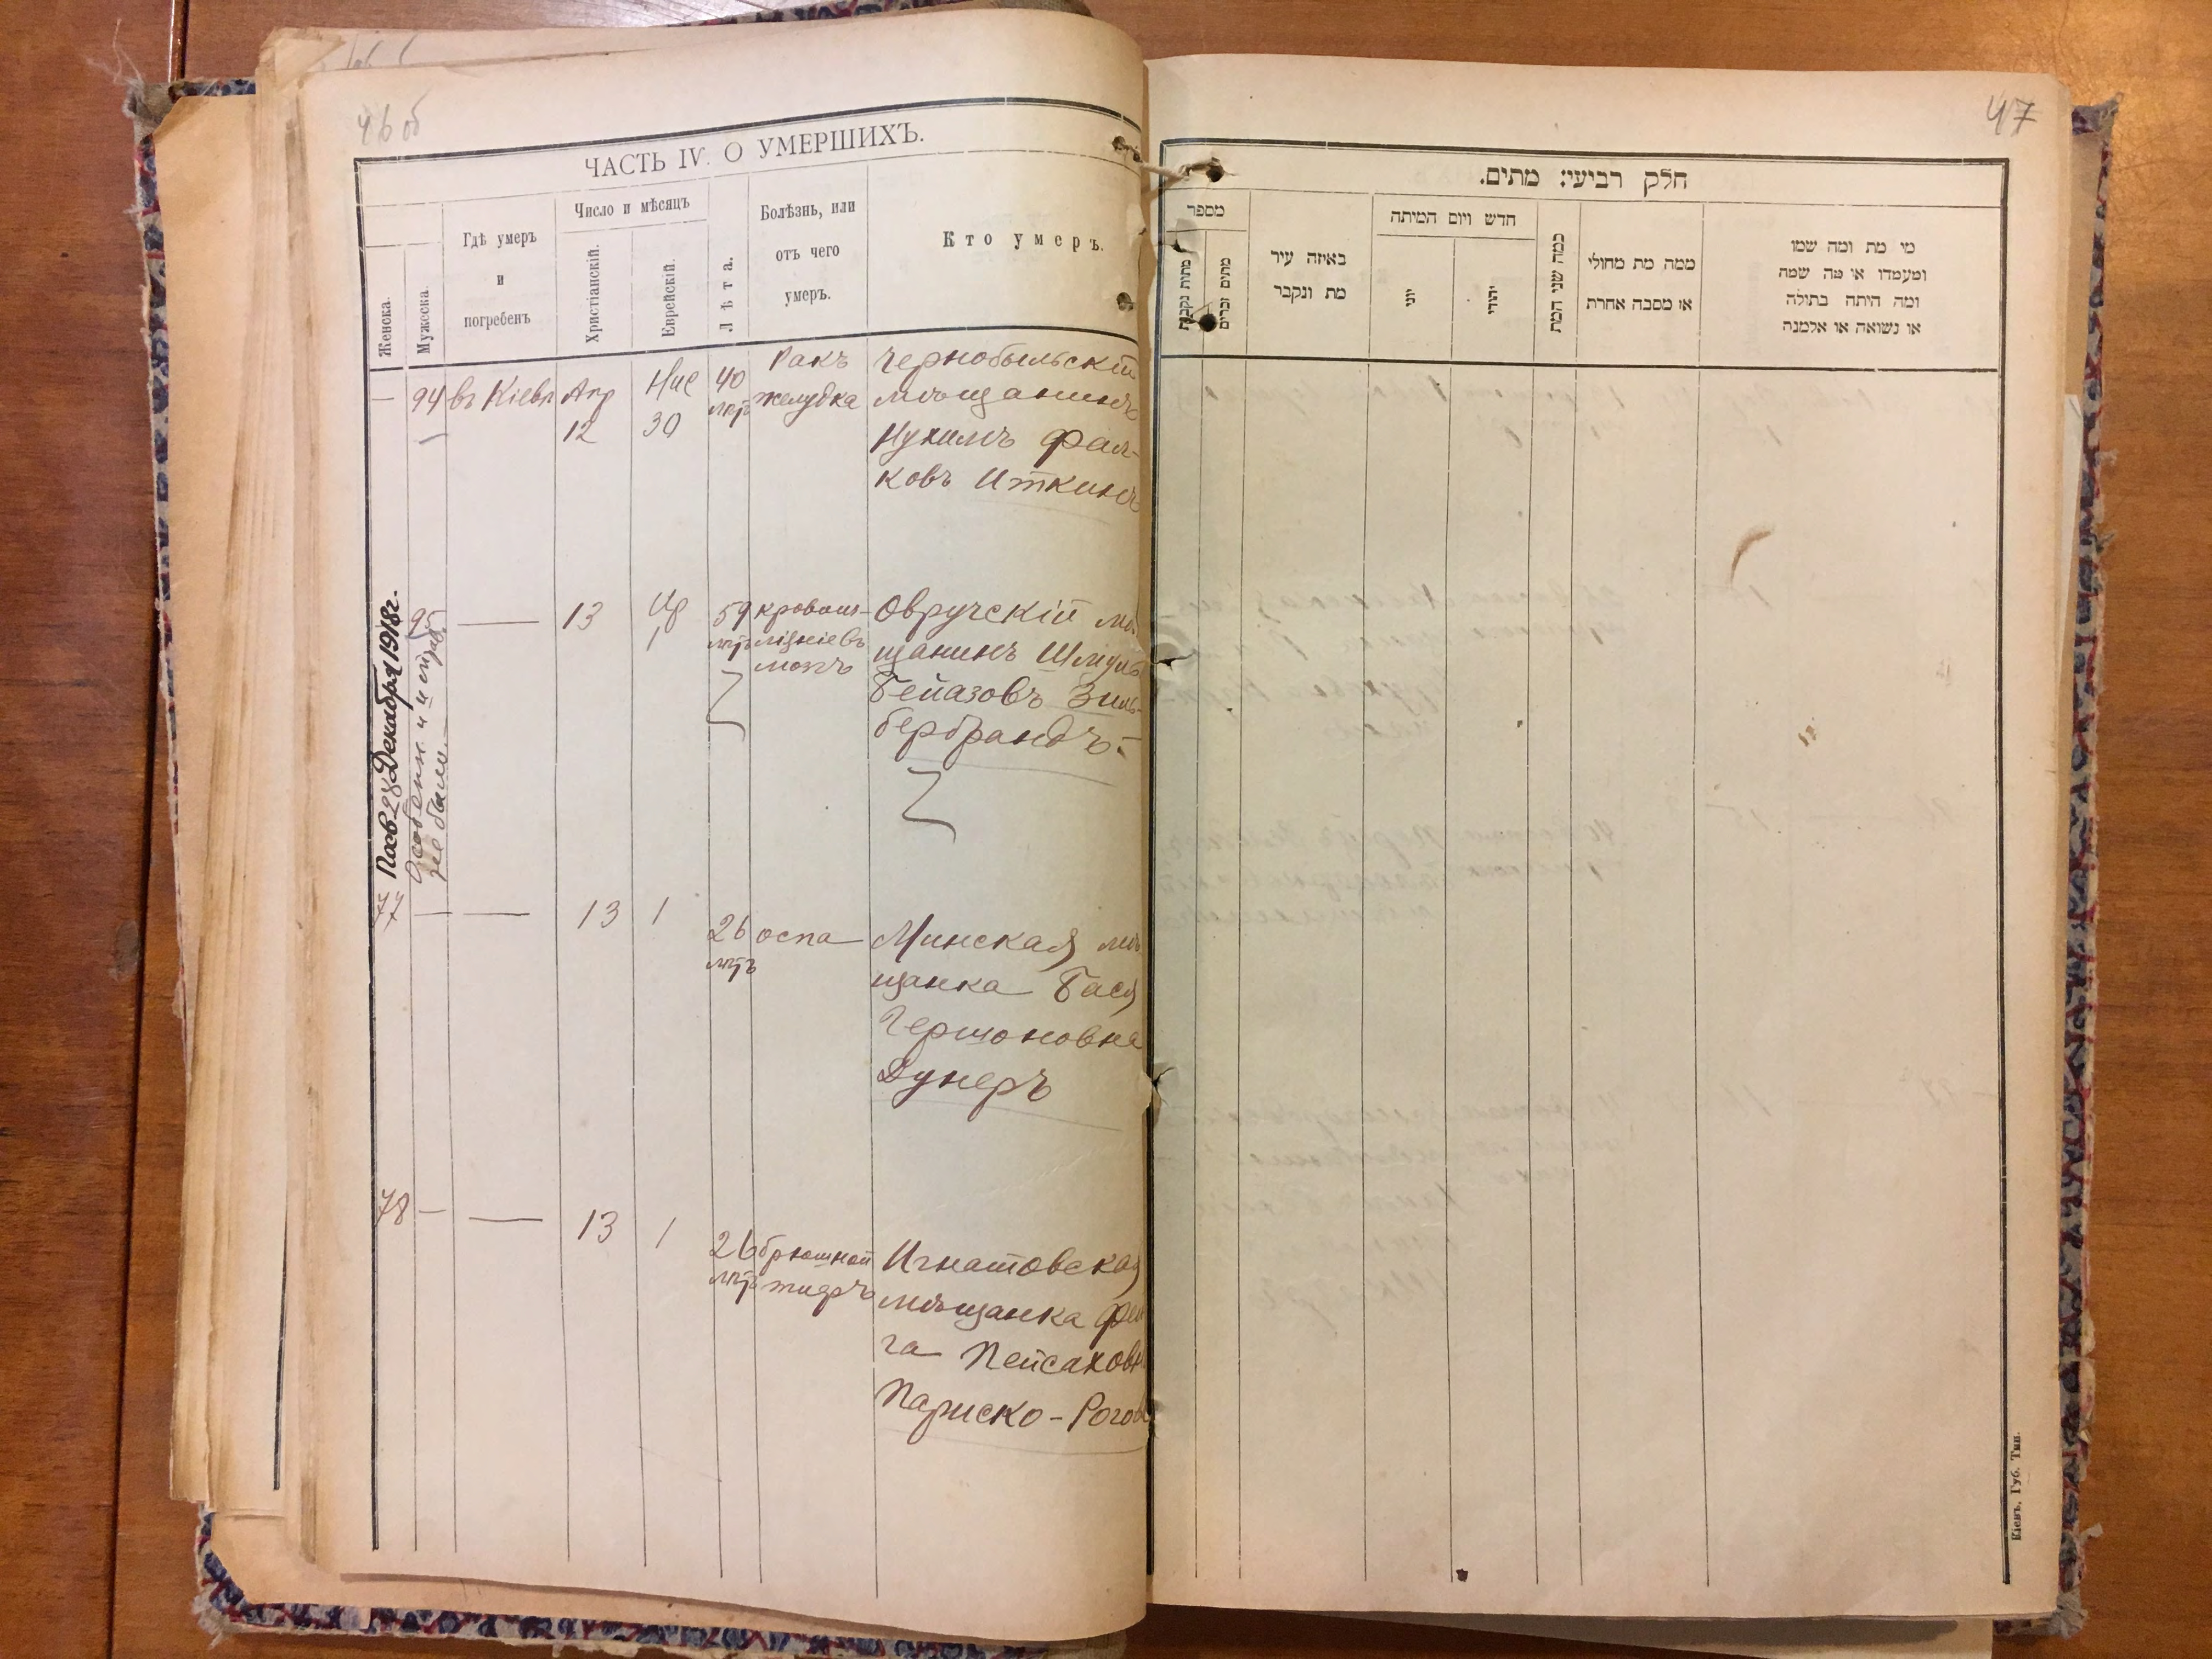 46 об
ЧАСТЬ IV. О УМЕРШИХЪ.
Женска.
Мужеска.
Гдѣ умеръ
и
погребенъ
Число и мѣсяцъ
Христіанскій.
Еврейскій.
Лѣта.
Болѣзнь, или
отъ чего
умеръ.
Кто умеръ.
— 94 въ Кіевѣ Апр 12 Нис 30 40 лѣтъ
Ракъ
желудка
Чернобыльскій
мѣщанинъ
Нухимъ Фал-
ковъ Иткинъ
95 — 13 Ир 1 59 лѣтъ
кровоиз-
ліяніе въ
мозгъ
Овручскій мѣ
щанинъ Шмуль
Бейазовъ Зиль-
бербрандъ.
Пров 28 Декабря 1918г.
не было.
77 — — 13 1 26 лѣтъ
оспа
Минская мѣ
щанка Бася
Гершоновна
Дунеръ
78 — — 13 1 26 лѣтъ
брюшной
тифъ
Игнатовская
мѣщанка Фей
га Пейсаховн
Париско-Рогов
47
חלק רביעי: מתים.
מספר
מתות נקבות
מתים זכרים
באיזה עיר
מת ונקבר
חדש ויום המיתה
יוני
יהודי
כמה שני המת
ממה מת מחולי
או מסבה אחרת
מי מת ומה שמו
ומעמדו או מה שמה
ומה היתה בתולה
או נשואה או אלמנה
Кіевъ, Губ. Тип.